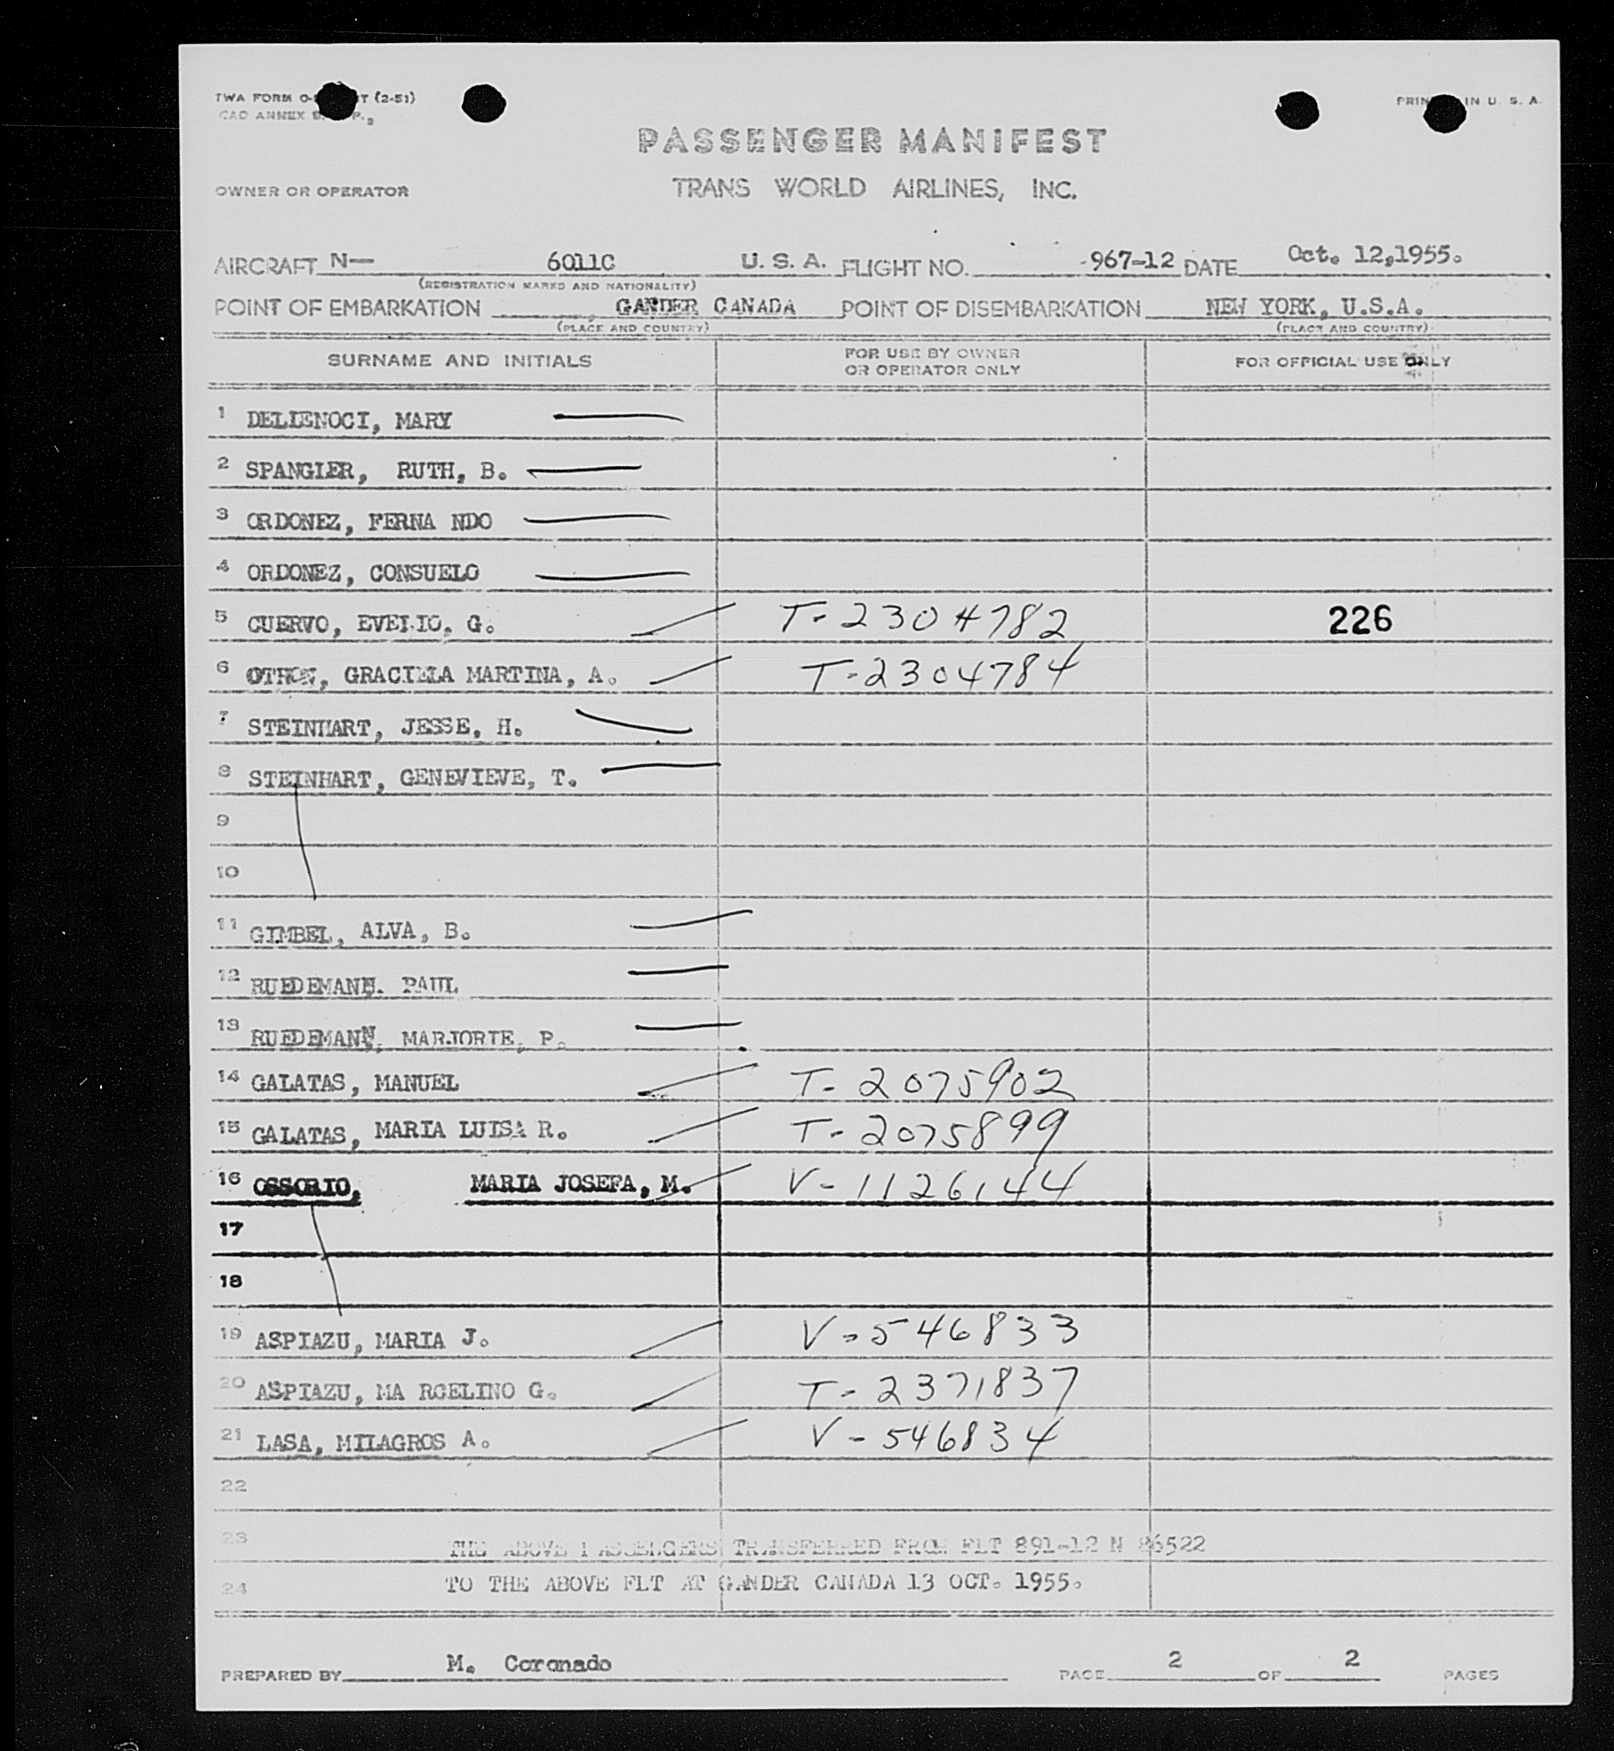 TWA FORM (2-51)
CAO ANNEX
PRIN IN U. S. A.
PASSENGER MANIFEST
OWNER OR OPERATOR TRANS WORLD AIRLINES, INC.
AIRCRAFT N— 6011C U. S. A. FLIGHT NO. 967-12 DATE Oct. 12,1955.
(REGISTRATION MARKS AND NATIONALITY)
POINT OF EMBARKATION GANDER CANADA POINT OF DISEMBARKATION NEW YORK, U.S.A.
(PLACE AND COUNTRY) (PLACE AND COUNTRY)
SURNAME AND INITIALS FOR USE BY OWNER OR OPERATOR ONLY FOR OFFICIAL USE ONLY
1 DELLENOCI, MARY
2 SPANGLER, RUTH, B.
3 ORDONEZ, FERNA NDO
4 ORDONEZ, CONSUELO
5 CUERVO, EVELIO, G. T-2304782 226
6 OTHON, GRACIELA MARTINA, A. T-2304784
7 STEINHART, JESSE, H.
8 STEINHART, GENEVIEVE, T.
9
10
11 GIMBEL, ALVA, B.
12 RUEDEMANN. PAUL
13 RUEDEMANN, MARJORIE, P.
14 GALATAS, MANUEL T-2075902
15 GALATAS, MARIA LUISA R. T-2075899
16 OSSORIO, MARIA JOSEFA, M. V-1126144
17
18
19 ASPIAZU, MARIA J. V-546833
20 ASPIAZU, MA RCELINO G. T-2371837
21 LASA, MILAGROS A. V-546834
22
23 THE ABOVE PASSENGERS TRANSFERRED FROM FLT 891-12 N 86522
24 TO THE ABOVE FLT AT GANDER CANADA 13 OCT. 1955.
PREPARED BY M. Coronado PAGE 2 OF 2 PAGES